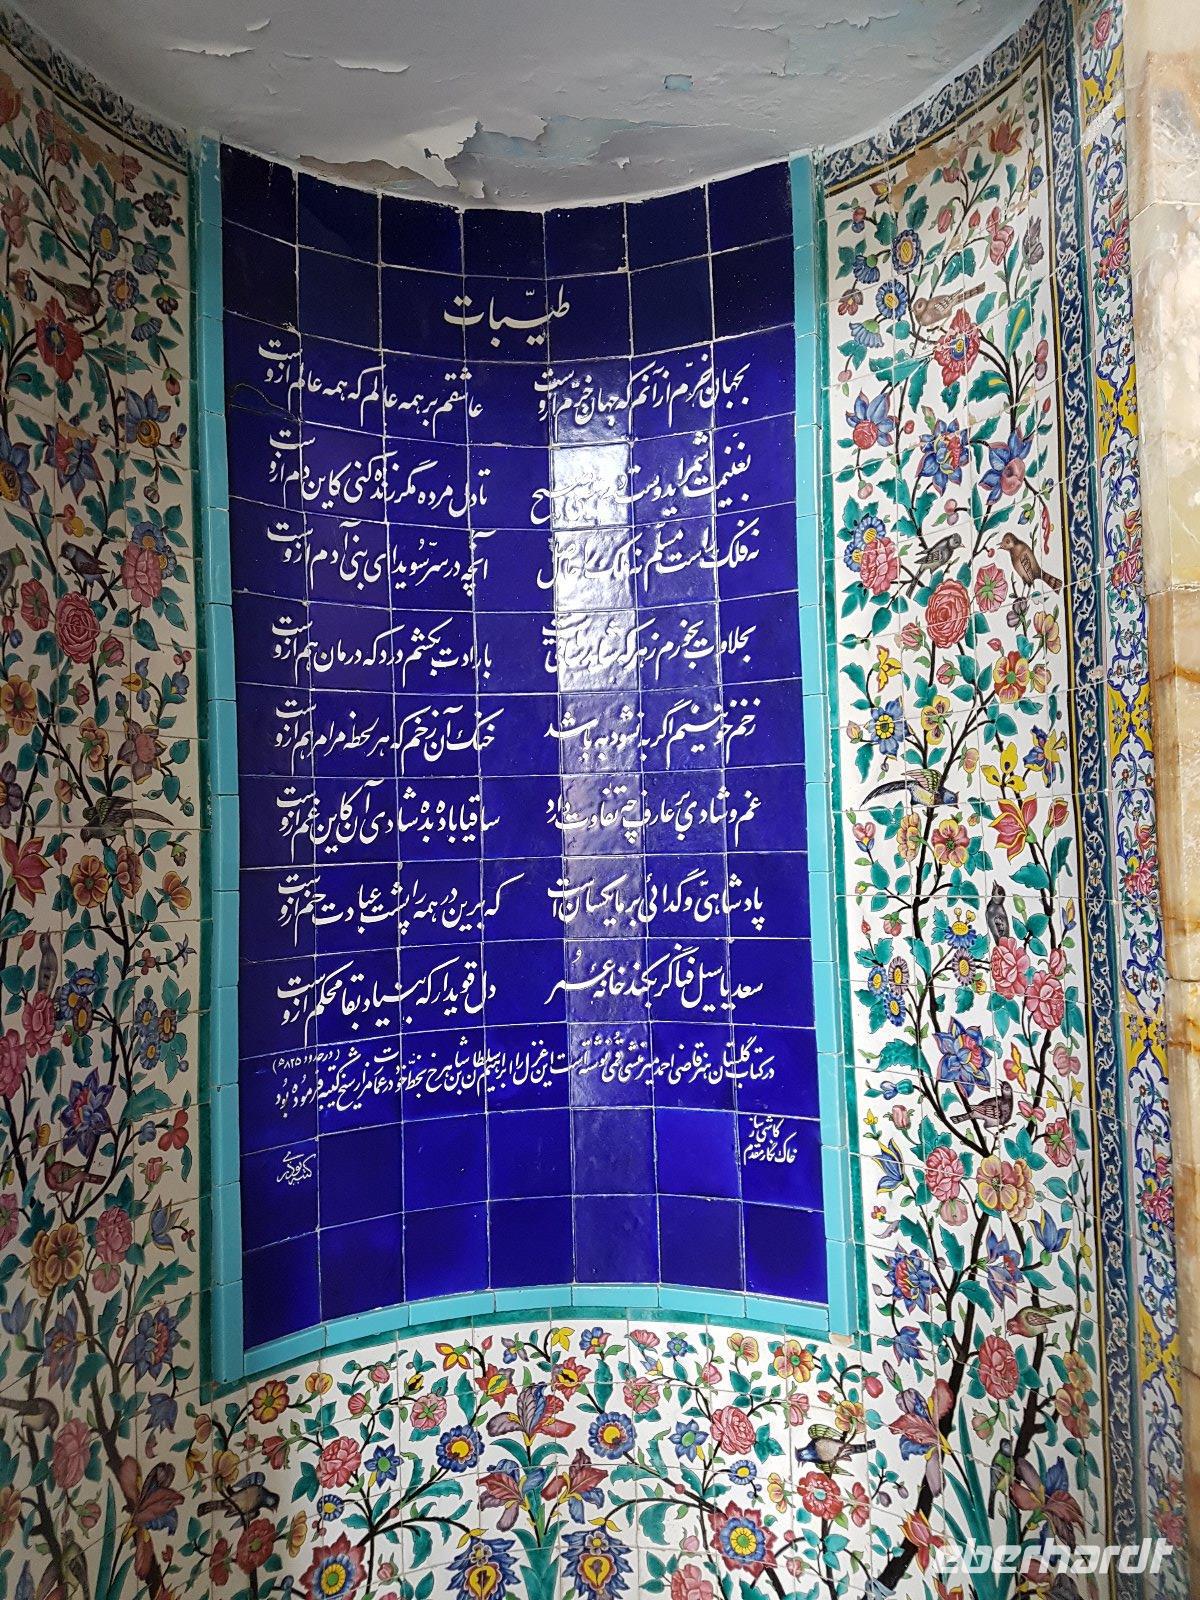 طیّبات
بجهان خرّم ازآنم که جهان خرّم ازوست عاشقم بر همه عالم که همه عالم ازوست
بغنیمت شمر ایدوست دم عیسی صبح تا دل مرده مگر زنده کنی کاین دم ازوست
نه فلک راست مسلّم نه ملک را حاصل آنچه در سرّ سُویدای بنی آدم ازوست
بحلاوت بخورم زهر که شاهد ساقیست بارادت بکشم درد که درمان هم ازوست
زخم خونینم اگر به نشود به باشد خنک آن زخم که هر لحظه مرا مرهم ازوست
غم و شادی بر عارف چه تفاوت دارد ساقیا باده بده شادی آن کاین غم ازوست
پادشاهی و گدائی بر ما یکسان است که برین در همه را پشت عبادت خم ازوست
سعدیا سیل فنا گر بکند خانهٔ عُمر دل قوی دار که بنیاد بقا محکم ازوست
در کتاب گلستان هنر قاضی احمد میرمنشی قمی نوشته است این غزل را ابراهیم سلطان بن شاهرخ بخط خود در عمارت مزار شیخ کتیبه فرموده بود (در حدود ۸۳۵ ه)
کاشی ساز
خاک نگار مقدم